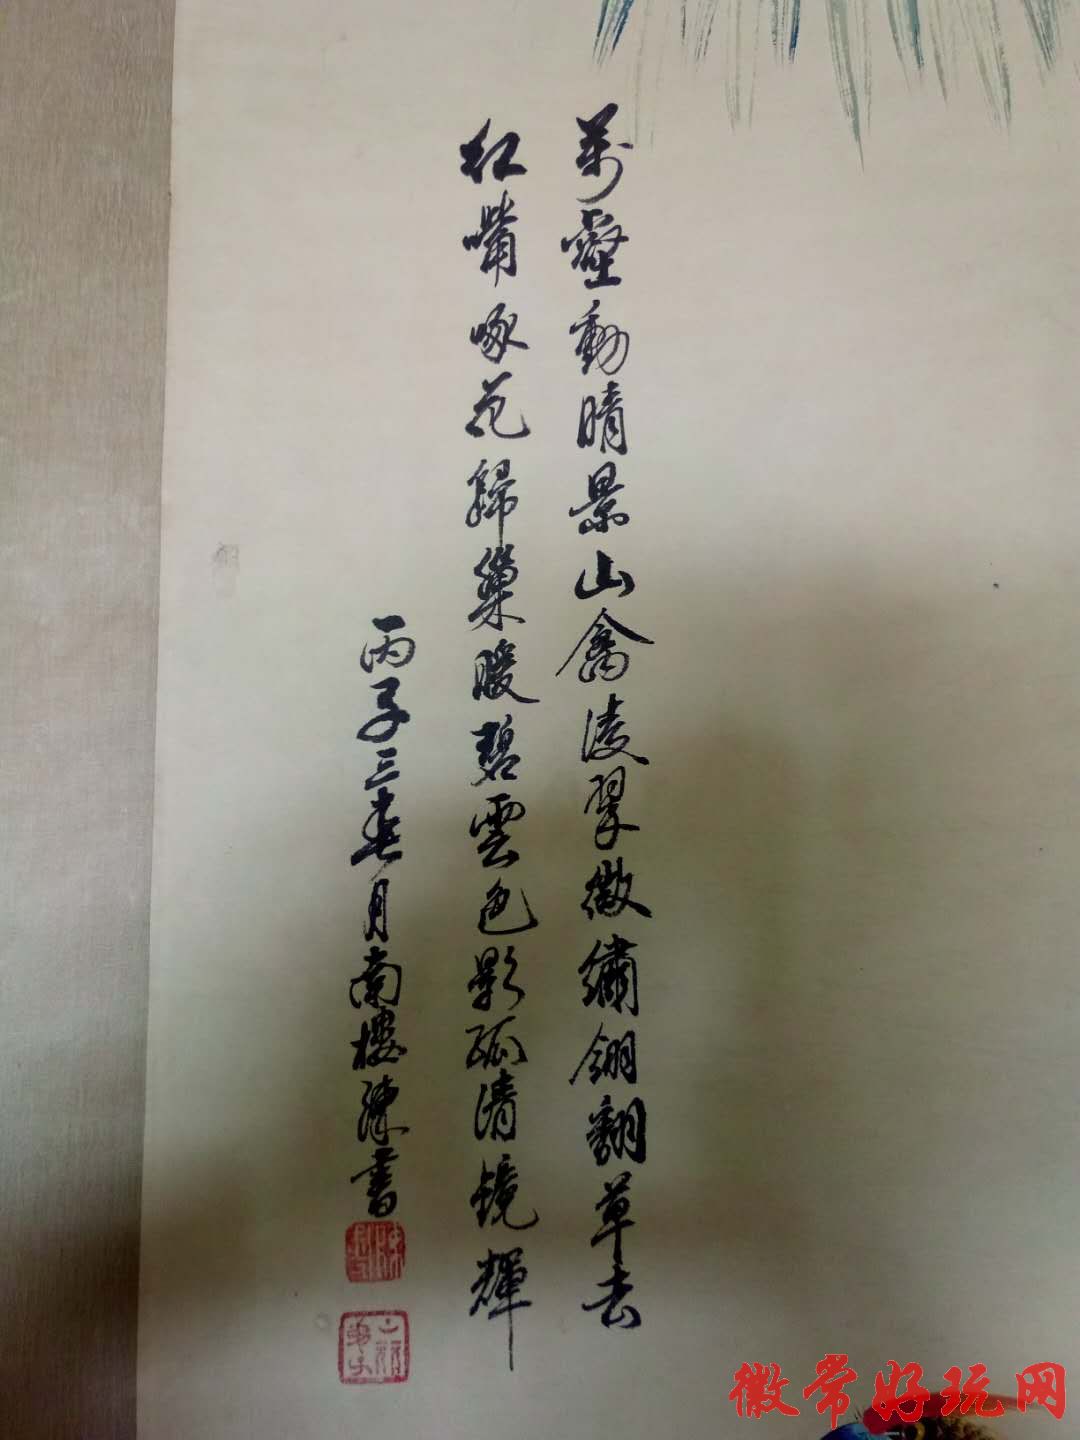 萬壑動晴景山禽凌翠微繡翎翻草去
紅嘴啄花歸巢暖碧雲色影孤清鏡輝
丙子三春月南樓陳書
徽常好玩网